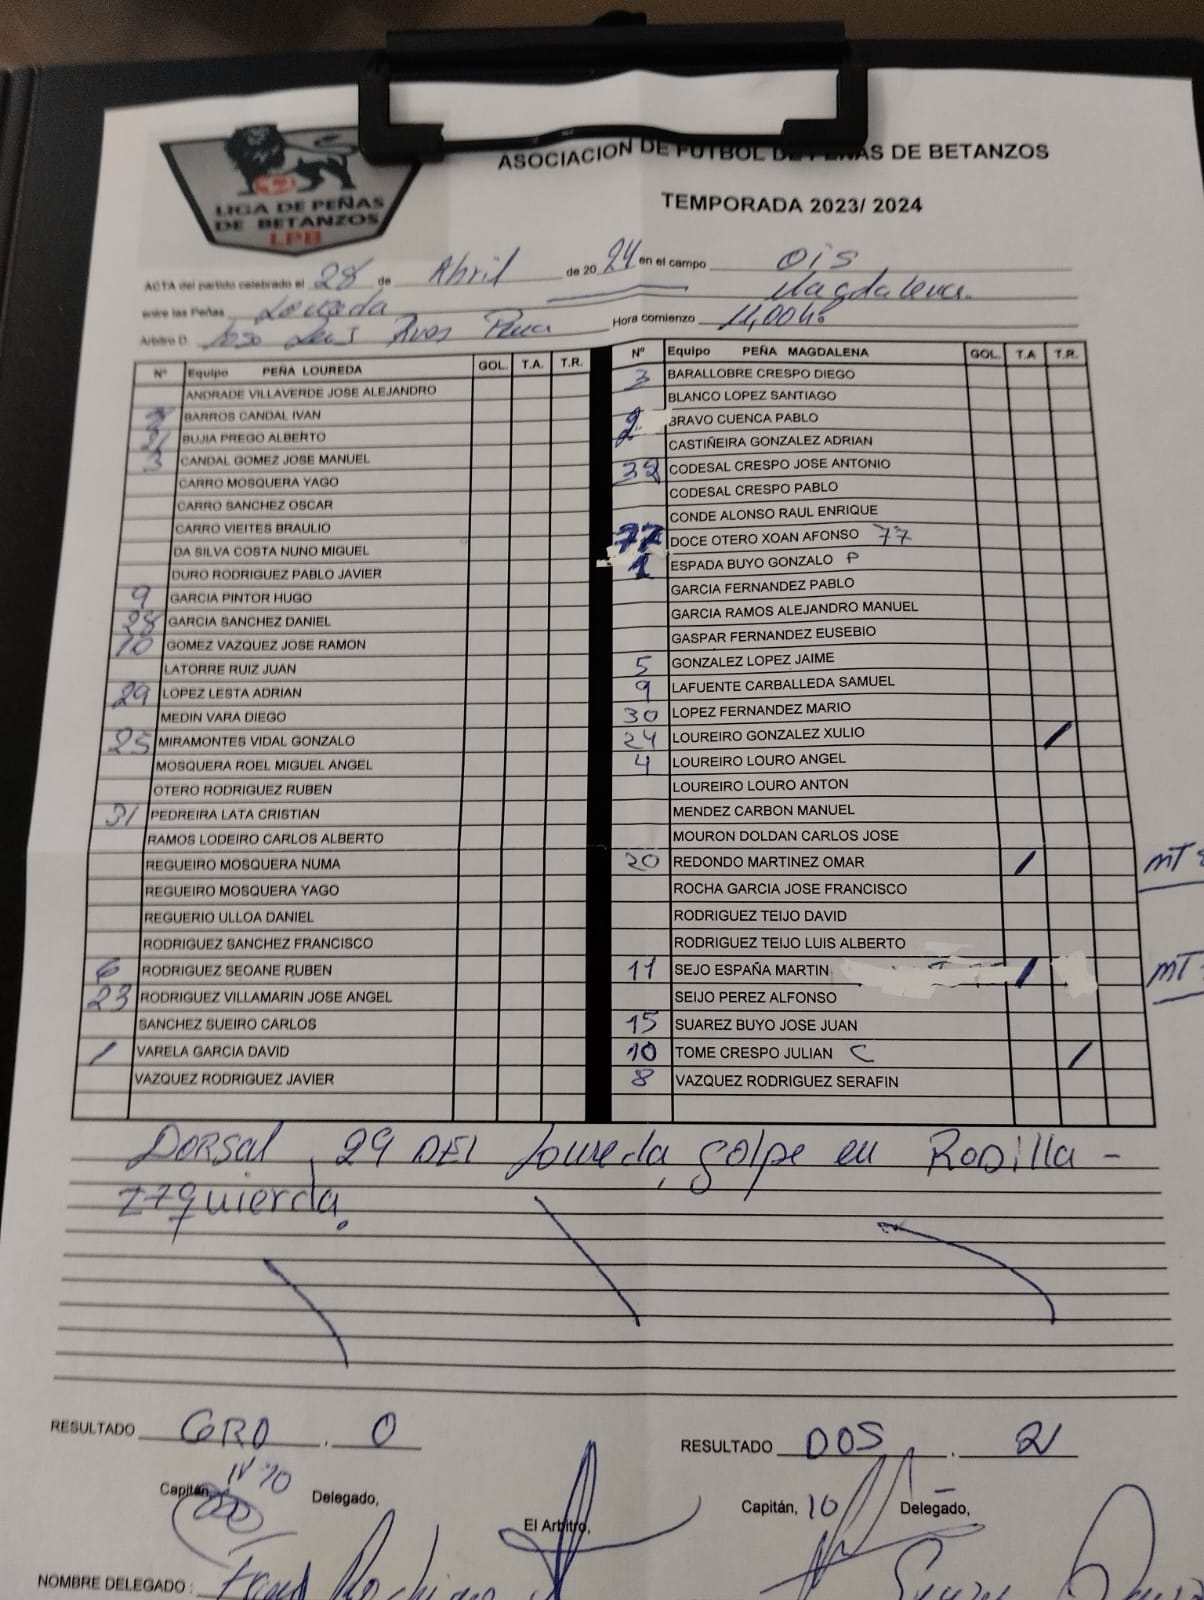 ASOCIACION DE FUTBOL DE PEÑAS DE BETANZOS
LIGA DE PEÑAS
DE BETANZOS
LPB
TEMPORADA 2023/ 2024
ACTA del partido celebrado el 28 de Abril de 2024 en el campo OIS
entre las Peñas Loureda Magdalena.
Arbitro D. Jose Luis Rivas Hora comienzo 11,00hs
Nº Equipo PEÑA LOUREDA GOL. T.A. T.R.
ANDRADE VILLAVERDE JOSE ALEJANDRO
BARROS CANDAL IVAN
BUJIA PREGO ALBERTO
3 CANDAL GOMEZ JOSE MANUEL
CARRO MOSQUERA YAGO
CARRO SANCHEZ OSCAR
CARRO VIEITES BRAULIO
DA SILVA COSTA NUNO MIGUEL
DURO RODRIGUEZ PABLO JAVIER
9 GARCIA PINTOR HUGO
28 GARCIA SANCHEZ DANIEL
10 GOMEZ VAZQUEZ JOSE RAMON
LATORRE RUIZ JUAN
29 LOPEZ LESTA ADRIAN
MEDIN VARA DIEGO
25 MIRAMONTES VIDAL GONZALO
MOSQUERA ROEL MIGUEL ANGEL
OTERO RODRIGUEZ RUBEN
31 PEDREIRA LATA CRISTIAN
RAMOS LODEIRO CARLOS ALBERTO
REGUEIRO MOSQUERA NUMA
REGUEIRO MOSQUERA YAGO
REGUERIO ULLOA DANIEL
RODRIGUEZ SANCHEZ FRANCISCO
6 RODRIGUEZ SEOANE RUBEN
23 RODRIGUEZ VILLAMARIN JOSE ANGEL
SANCHEZ SUEIRO CARLOS
1 VARELA GARCIA DAVID
VAZQUEZ RODRIGUEZ JAVIER
Nº Equipo PEÑA MAGDALENA GOL. T.A T.R.
3 BARALLOBRE CRESPO DIEGO
BLANCO LOPEZ SANTIAGO
2 BRAVO CUENCA PABLO
CASTIÑEIRA GONZALEZ ADRIAN
32 CODESAL CRESPO JOSE ANTONIO
CODESAL CRESPO PABLO
CONDE ALONSO RAUL ENRIQUE
77 DOCE OTERO XOAN AFONSO 77
1 ESPADA BUYO GONZALO P
GARCIA FERNANDEZ PABLO
GARCIA RAMOS ALEJANDRO MANUEL
GASPAR FERNANDEZ EUSEBIO
5 GONZALEZ LOPEZ JAIME
9 LAFUENTE CARBALLEDA SAMUEL
30 LOPEZ FERNANDEZ MARIO
24 LOUREIRO GONZALEZ XULIO /
4 LOUREIRO LOURO ANGEL
LOUREIRO LOURO ANTON
MENDEZ CARBON MANUEL
MOURON DOLDAN CARLOS JOSE
20 REDONDO MARTINEZ OMAR / MT
ROCHA GARCIA JOSE FRANCISCO
RODRIGUEZ TEIJO DAVID
RODRIGUEZ TEIJO LUIS ALBERTO
11 SEJO ESPAÑA MARTIN / MT
SEIJO PEREZ ALFONSO
15 SUAREZ BUYO JOSE JUAN
10 TOME CRESPO JULIAN C /
8 VAZQUEZ RODRIGUEZ SERAFIN
DORSAL, 29 DEL Loureda, golpe en RODilla -
IZquierda.
RESULTADO CERO . 0
RESULTADO DOS . 2
Capitán, Nº 10 Delegado, El Arbitro, Capitán, 10 Delegado,
NOMBRE DELEGADO: